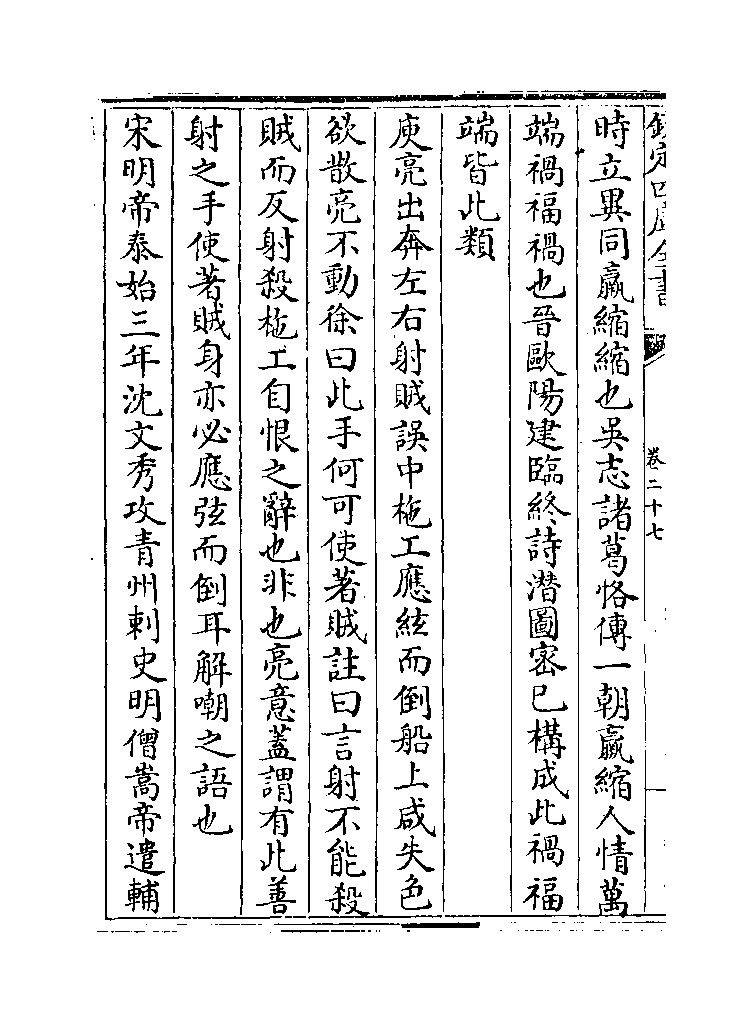 欽定四庫全書
卷二十七
時立異同羸縮縮也吳志諸葛恪傳一朝羸縮人情萬
端禍福禍也晉歐陽建臨終詩潛圖密已構成此禍福
端皆此類
庾亮出奔左右射賊誤中柂工應絃而倒船上咸失色
欲散亮不動徐曰此手何可使著賊註曰言射不能殺
賊而反射殺柂工自恨之辭也非也亮意蓋謂有此善
射之手使著賊身亦必應弦而倒耳解嘲之語也
宋明帝泰始三年沈文秀攻青州刺史明僧嵩帝遣輔